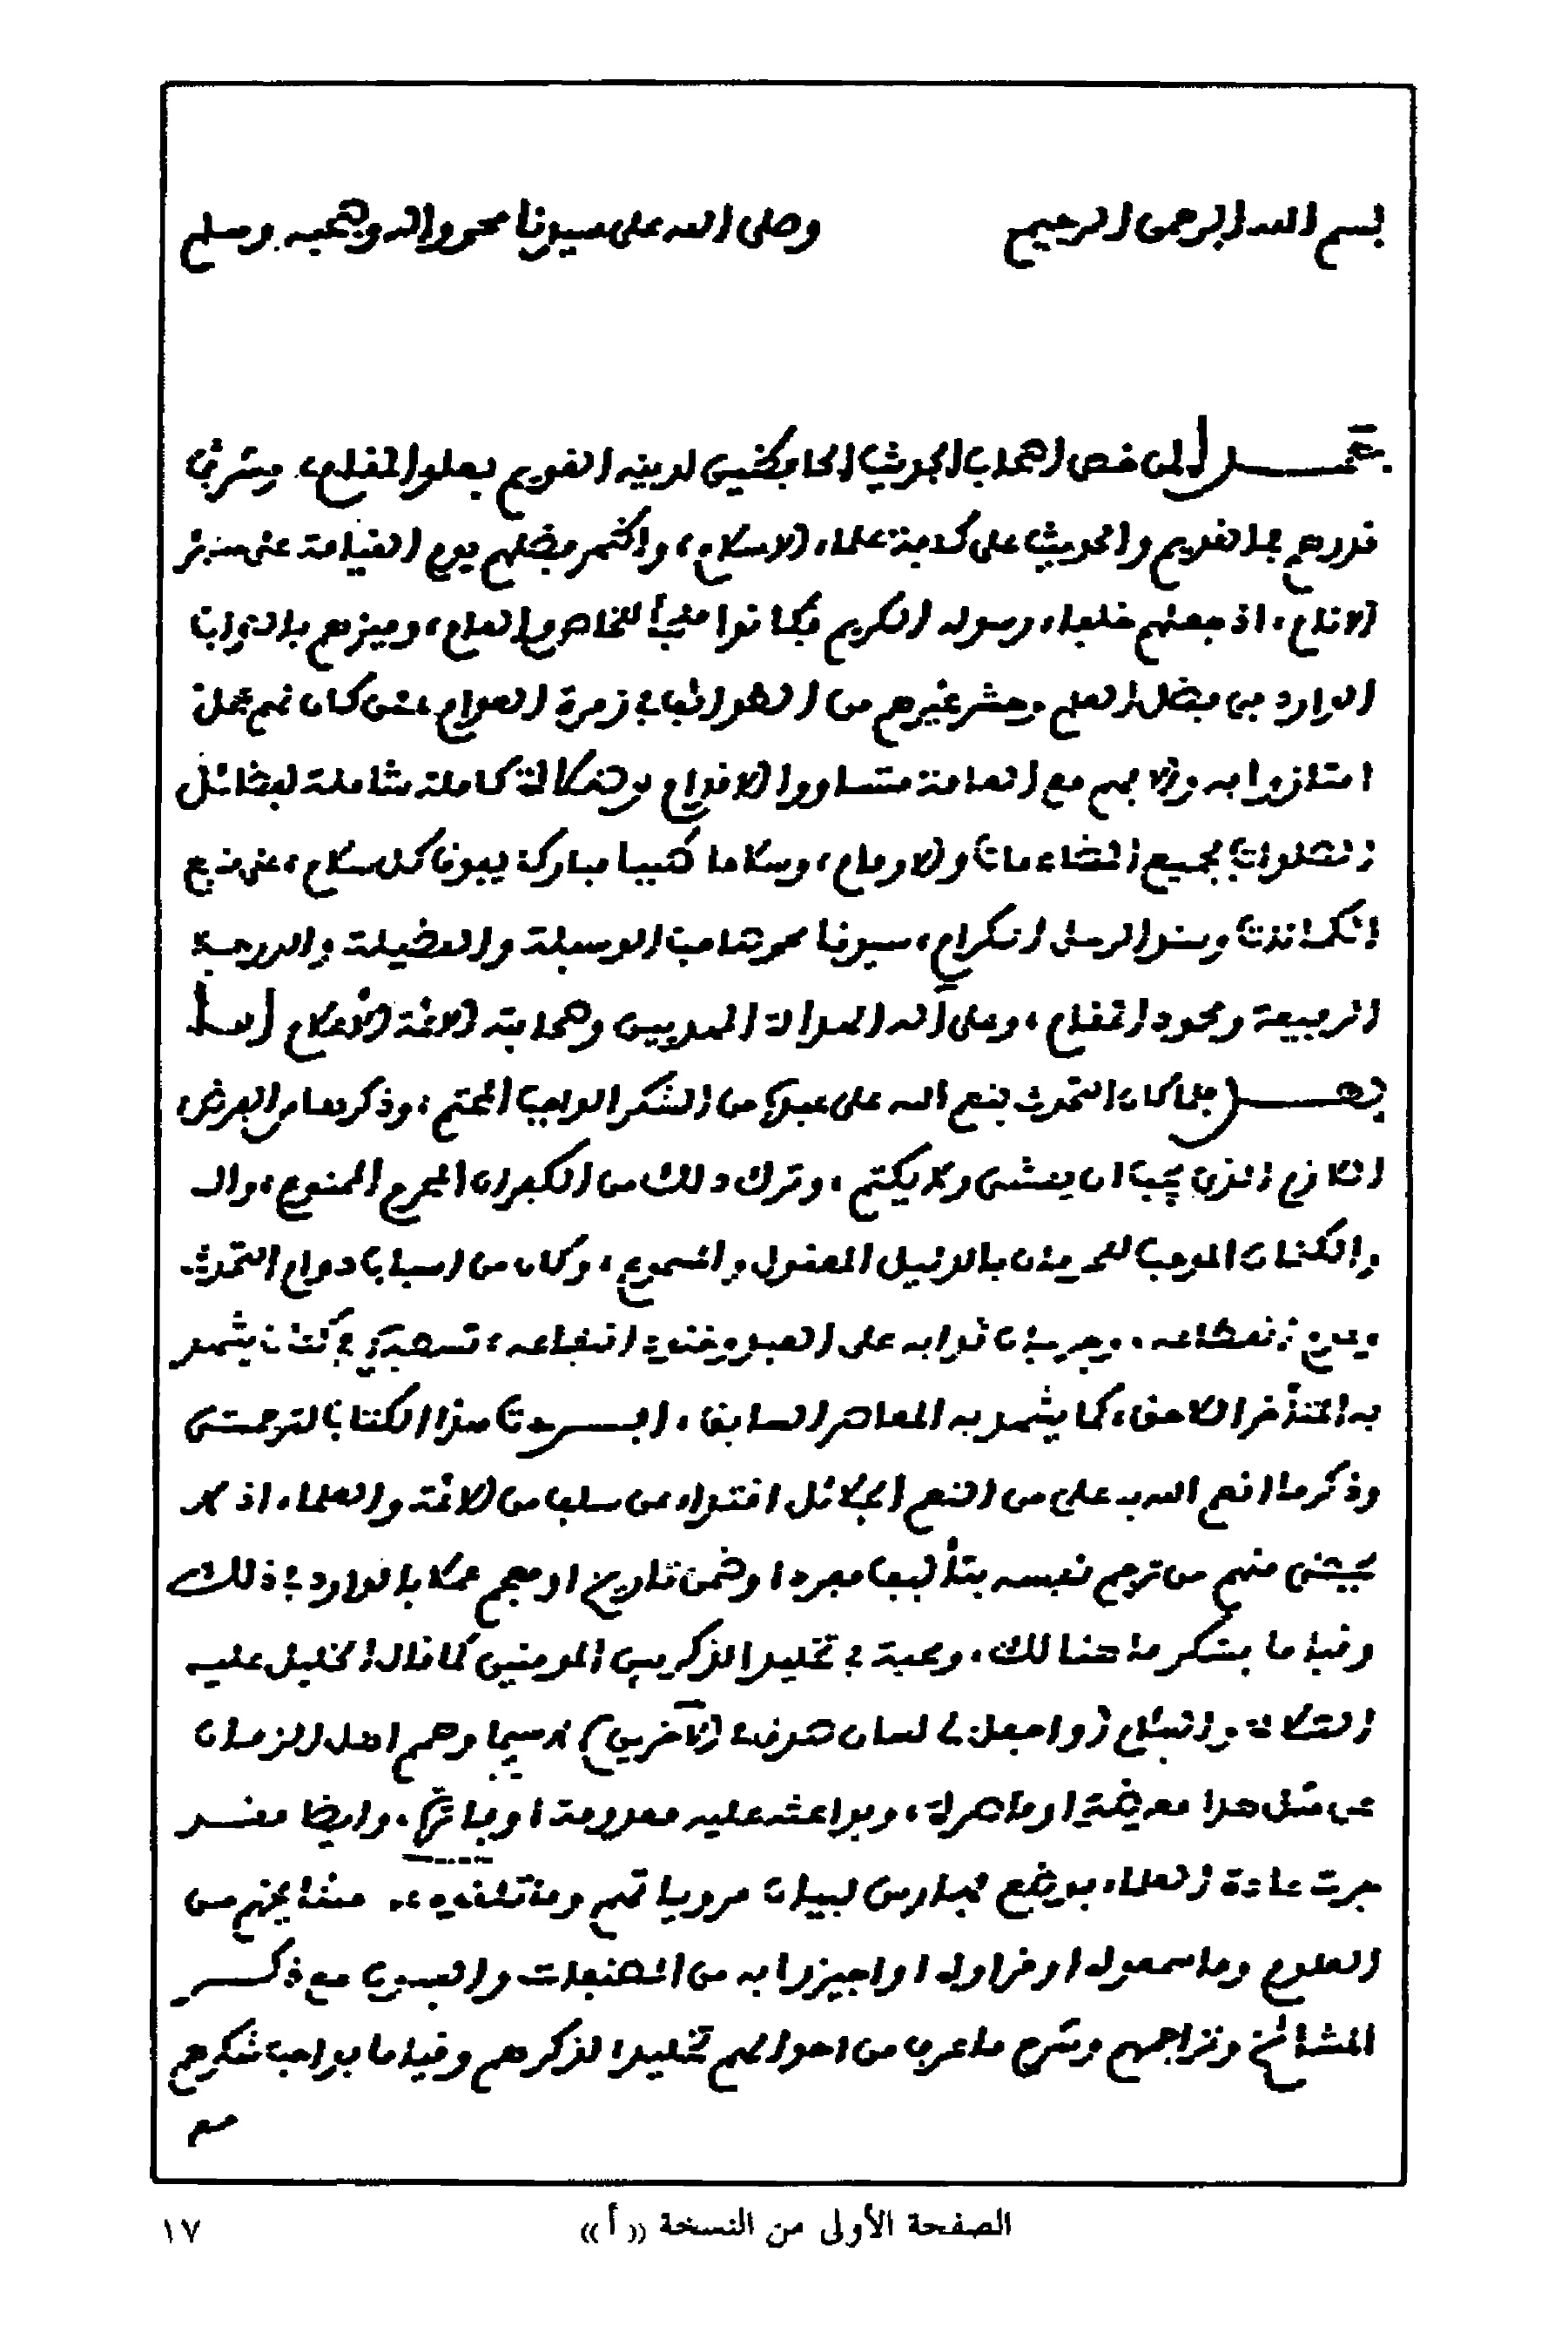 بسم الله الرحمن الرحيم وصلى الله على سيدنا محمد واله وصحبه وسلم
الذي خص اصحاب الحديث الحافظين لدينه القويم بعلو المقام، وشرف
قدرهم في القديم والحديث على كافة علماء الاسلام، واظهر فضلهم يوم القيامة على سائر
الانام، اذ جعلهم خلفاء رسوله الكريم فكانوا للخاص والعام، وميزهم بالثواب
الوارد في فضل العلم وحشر غيرهم من الطوائف في زمرة العوام، حتى كان لهم
امتازوا به والا فهم مع العامة متساووا الاقدام صلاة كاملة شاملة لفضائل
الصلوات بجميع، وسلاما طيبا مباركا يفوق كل سلام، على منبع
الكمالات وسند الرسل الكرام، سيدنا محمد صاحب الوسيلة والفضيلة والدرجة
الرفيعة ومحمود المقام، وعلى آله الهداة المهديين وصحابته الائمة الأعلام اما
بعد فلما كان التحدث بنعم الله على عبده من الشكر الواجب المحتم، وذكرها من الفرض
اللازم الذي يجب ان يفشى ولا يكتم، وترك ذلك من الكفران المحرم الممنوع،
والكتمان الموجب للحرمان بالدليل المعقول والمسموع، وكان من اسباب دوام التحدث
وعدم انقطاعه، وجريان ثوابه على العبد انتفاعه، تسطيره في كتاب يشهد
به المتأخر اللاحق، كما يشهد به المعاصر السابق، افردت هذا الكتاب لترجمتي
وذكر ما انعم الله به علي من النعم الجلائل اقتداء بمن سلف من الائمة والعلماء، اذ
منهم من ترجم نفسه بتأليف مفرد او ضمن تاريخ او معجم عملا بالوارد في ذلك
وقياما بشكر ما هنالك، ومحبة في تخليد الذكر بين المومنين كما قال الخليل عليه
الصلاة والسلام (واجعل لي لسان صدق في الآخرين) لا سيما وهمم اهل الزمان
عن مثل هذا معرضة او قاصرة، وبواعثه عليه معدومة او فاترة، وايضا فقد
جرت عادة العلماء بوضع فهارس لبيان مروياتهم وما تلقوه عن مشايخهم من
العلوم وما سمعوه او قراوه او اجيزوا به من المصنفات والفنون مع ذكر
المشائخ وتراجمهم وشرح ما عرف من احوالهم تخليدا لذكرهم وقياما بواجب شكرهم
الصفحة الأولى من النسخة «أ»
١٧